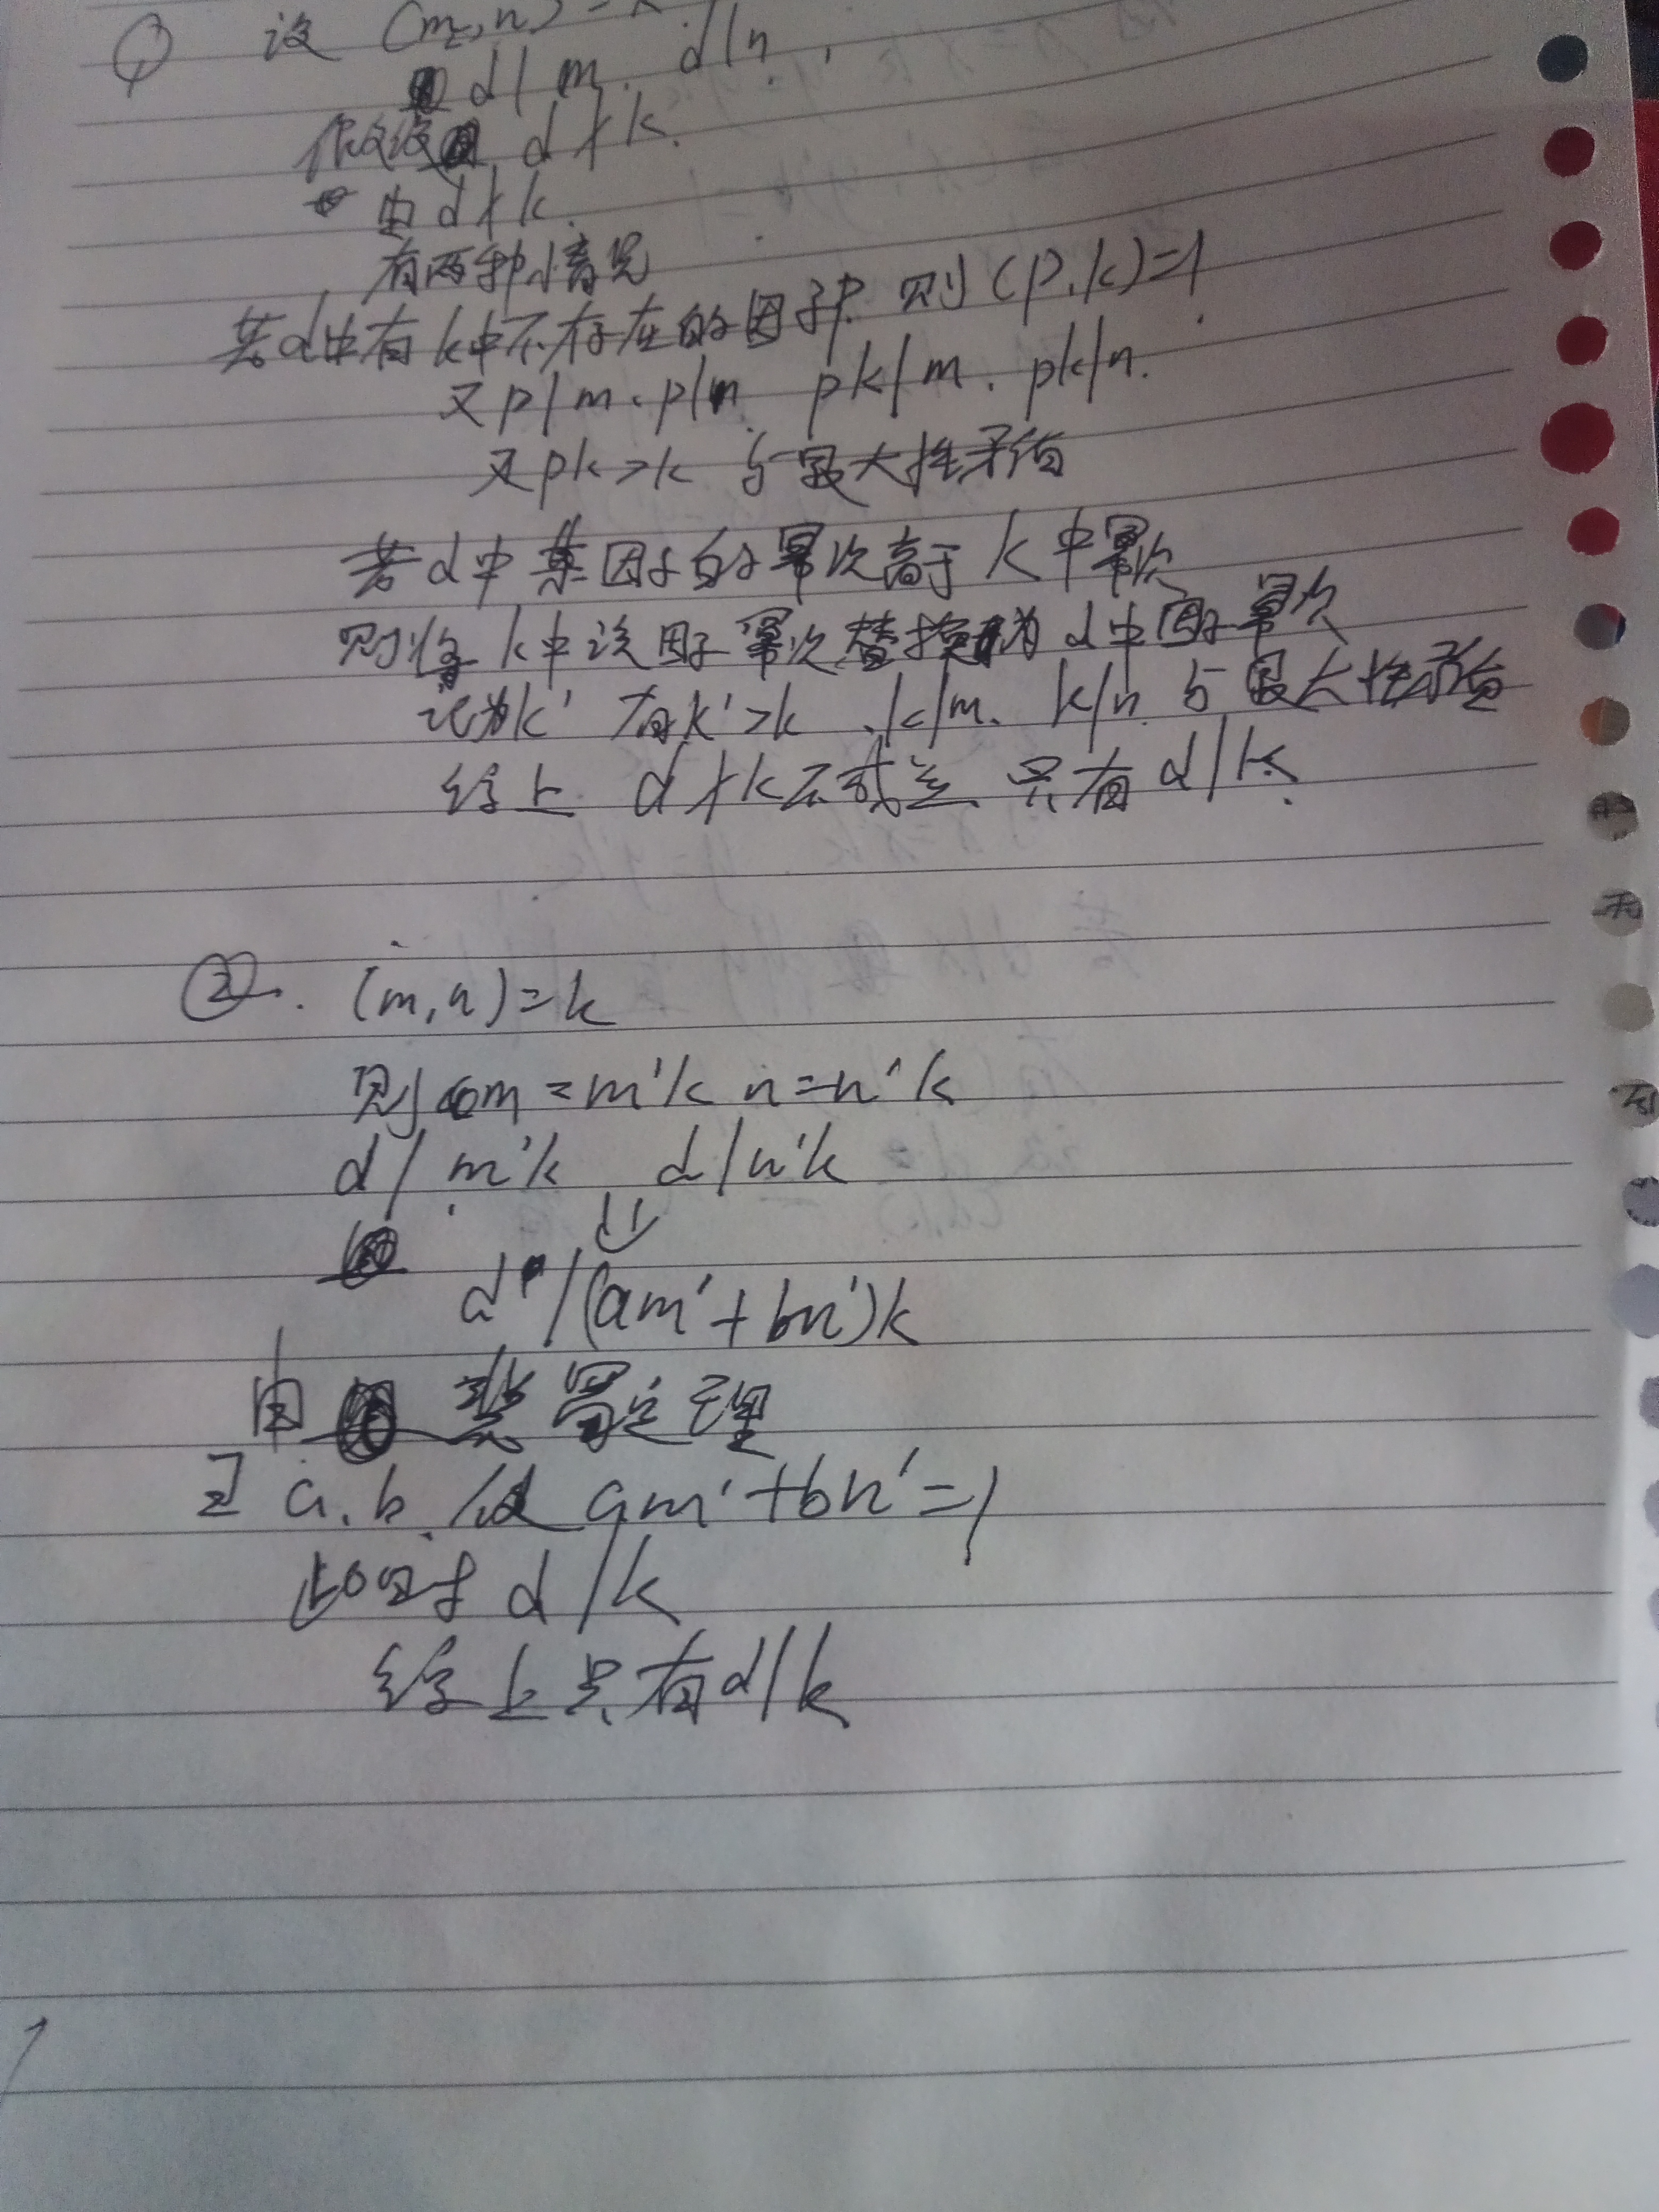 ① 设 (m,n)=k
d|m. d|n,
假设 d∤k.
由d∤k.
有两种情况
若d中有k中不存在的因子P. 则(P,k)=1
又p|m、p|n. pk|m、pk|n.
又pk>k 与最大性矛盾
若d中某因子的幂次高于k中幂次
则将k中该因子幂次替换为d中因子幂次
记为k' 有k'>k、k|m、k|n 与最大性矛盾
综上 d∤k不成立 只有d|k.
②. (m,n)=k
则m=m'k n=n'k
d|m'k d|n'k
⇓
d|(am'+bn')k
由裴蜀定理
∃a.b.使am'+bn'=1
此时d|k
综上只有d|k